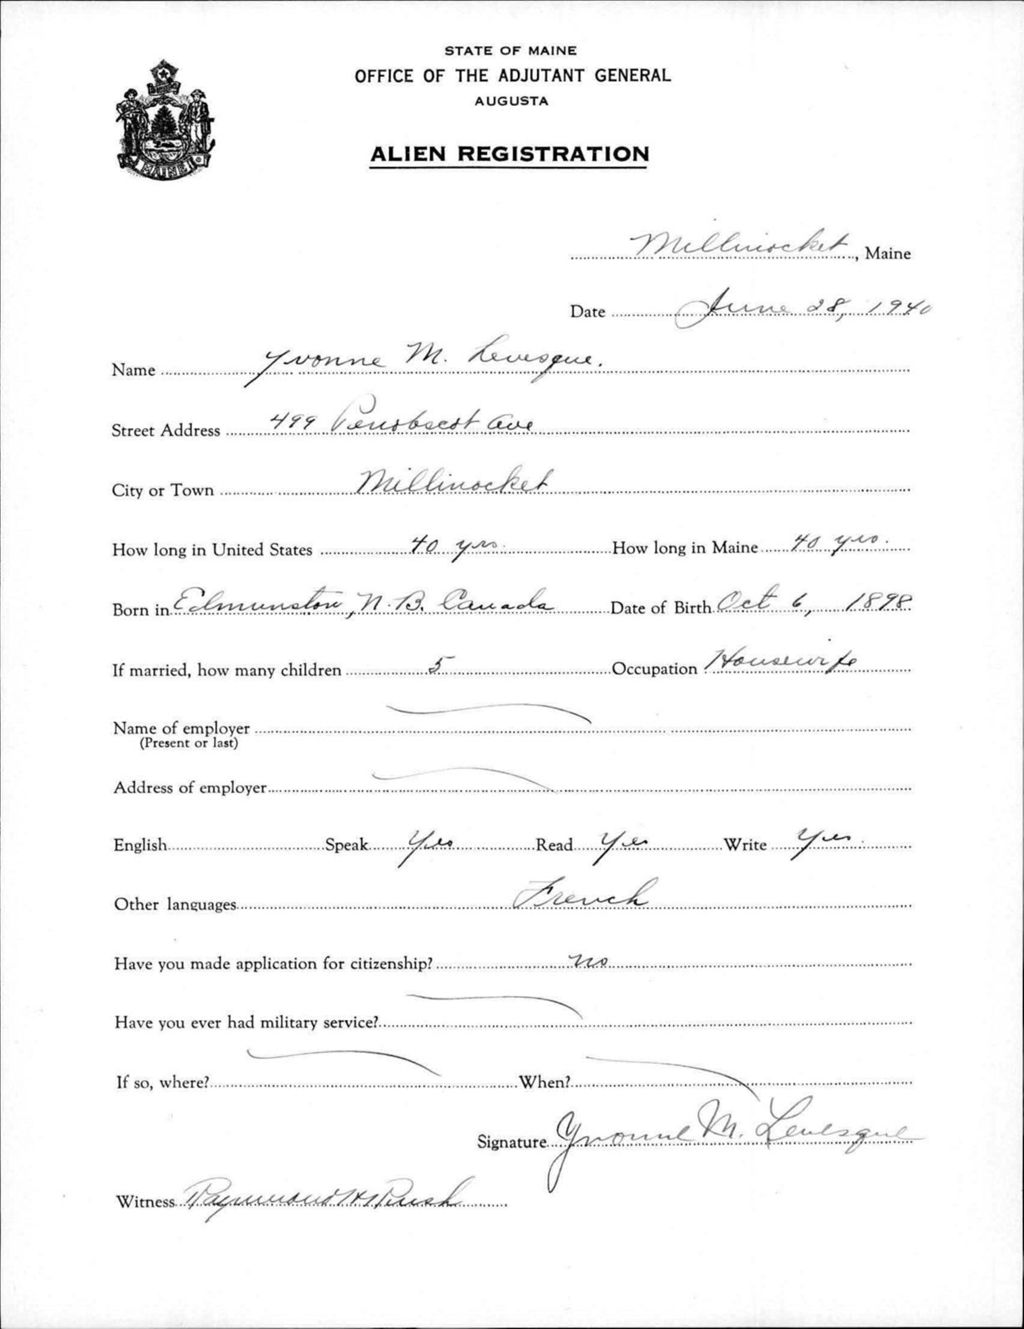 STATE OF MAINE
OFFICE OF THE ADJUTANT GENERAL
AUGUSTA
ALIEN REGISTRATION
MAINE
Millinocket, Maine
Date June 28, 1940
Name Yvonne M. Levesque.
Street Address 499 Penobscot Ave
City or Town Millinocket
How long in United States 40 yrs. How long in Maine 40 yrs.
Born in Edmunston, N.B. Canada Date of Birth Oct 6, 1898
If married, how many children 5 Occupation Housewife
Name of employer
(Present or last)
Address of employer
English Speak Yes Read Yes Write Yes.
Other languages French
Have you made application for citizenship? no
Have you ever had military service?
If so, where? When?
Signature Yvonne M. Levesque
Witness Raymond H Rush